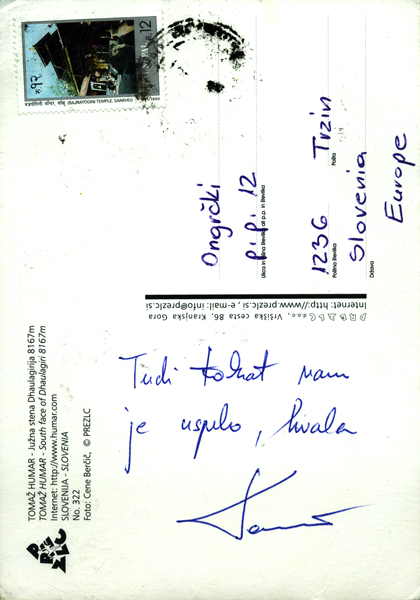 रु १२ NEPAL R. 12
(BAJRAYOGINI TEMPLE, SANKHU)
Ongrčki
p.p. 12
Ulica in hišna številka ali p.p. in številka
1236 Trzin
Poštna številka
Pošta
Slovenia
Država
Europe
Vršiška cesta 86, Kranjska Gora
Internet: http:/www.prezlc.si, e-mail: info@prezlc.si
Tudi tokrat nam
je uspelo, hvala
TOMAŽ HUMAR - Južna stena Dhaulagirija 8167m
TOMAŽ HUMAR - South face of Dhaulagiri 8167m
Internet: http://www.humar.com
SLOVENIJA - SLOVENIA
No. 322
Foto: Cene Berčič, © PREZLC